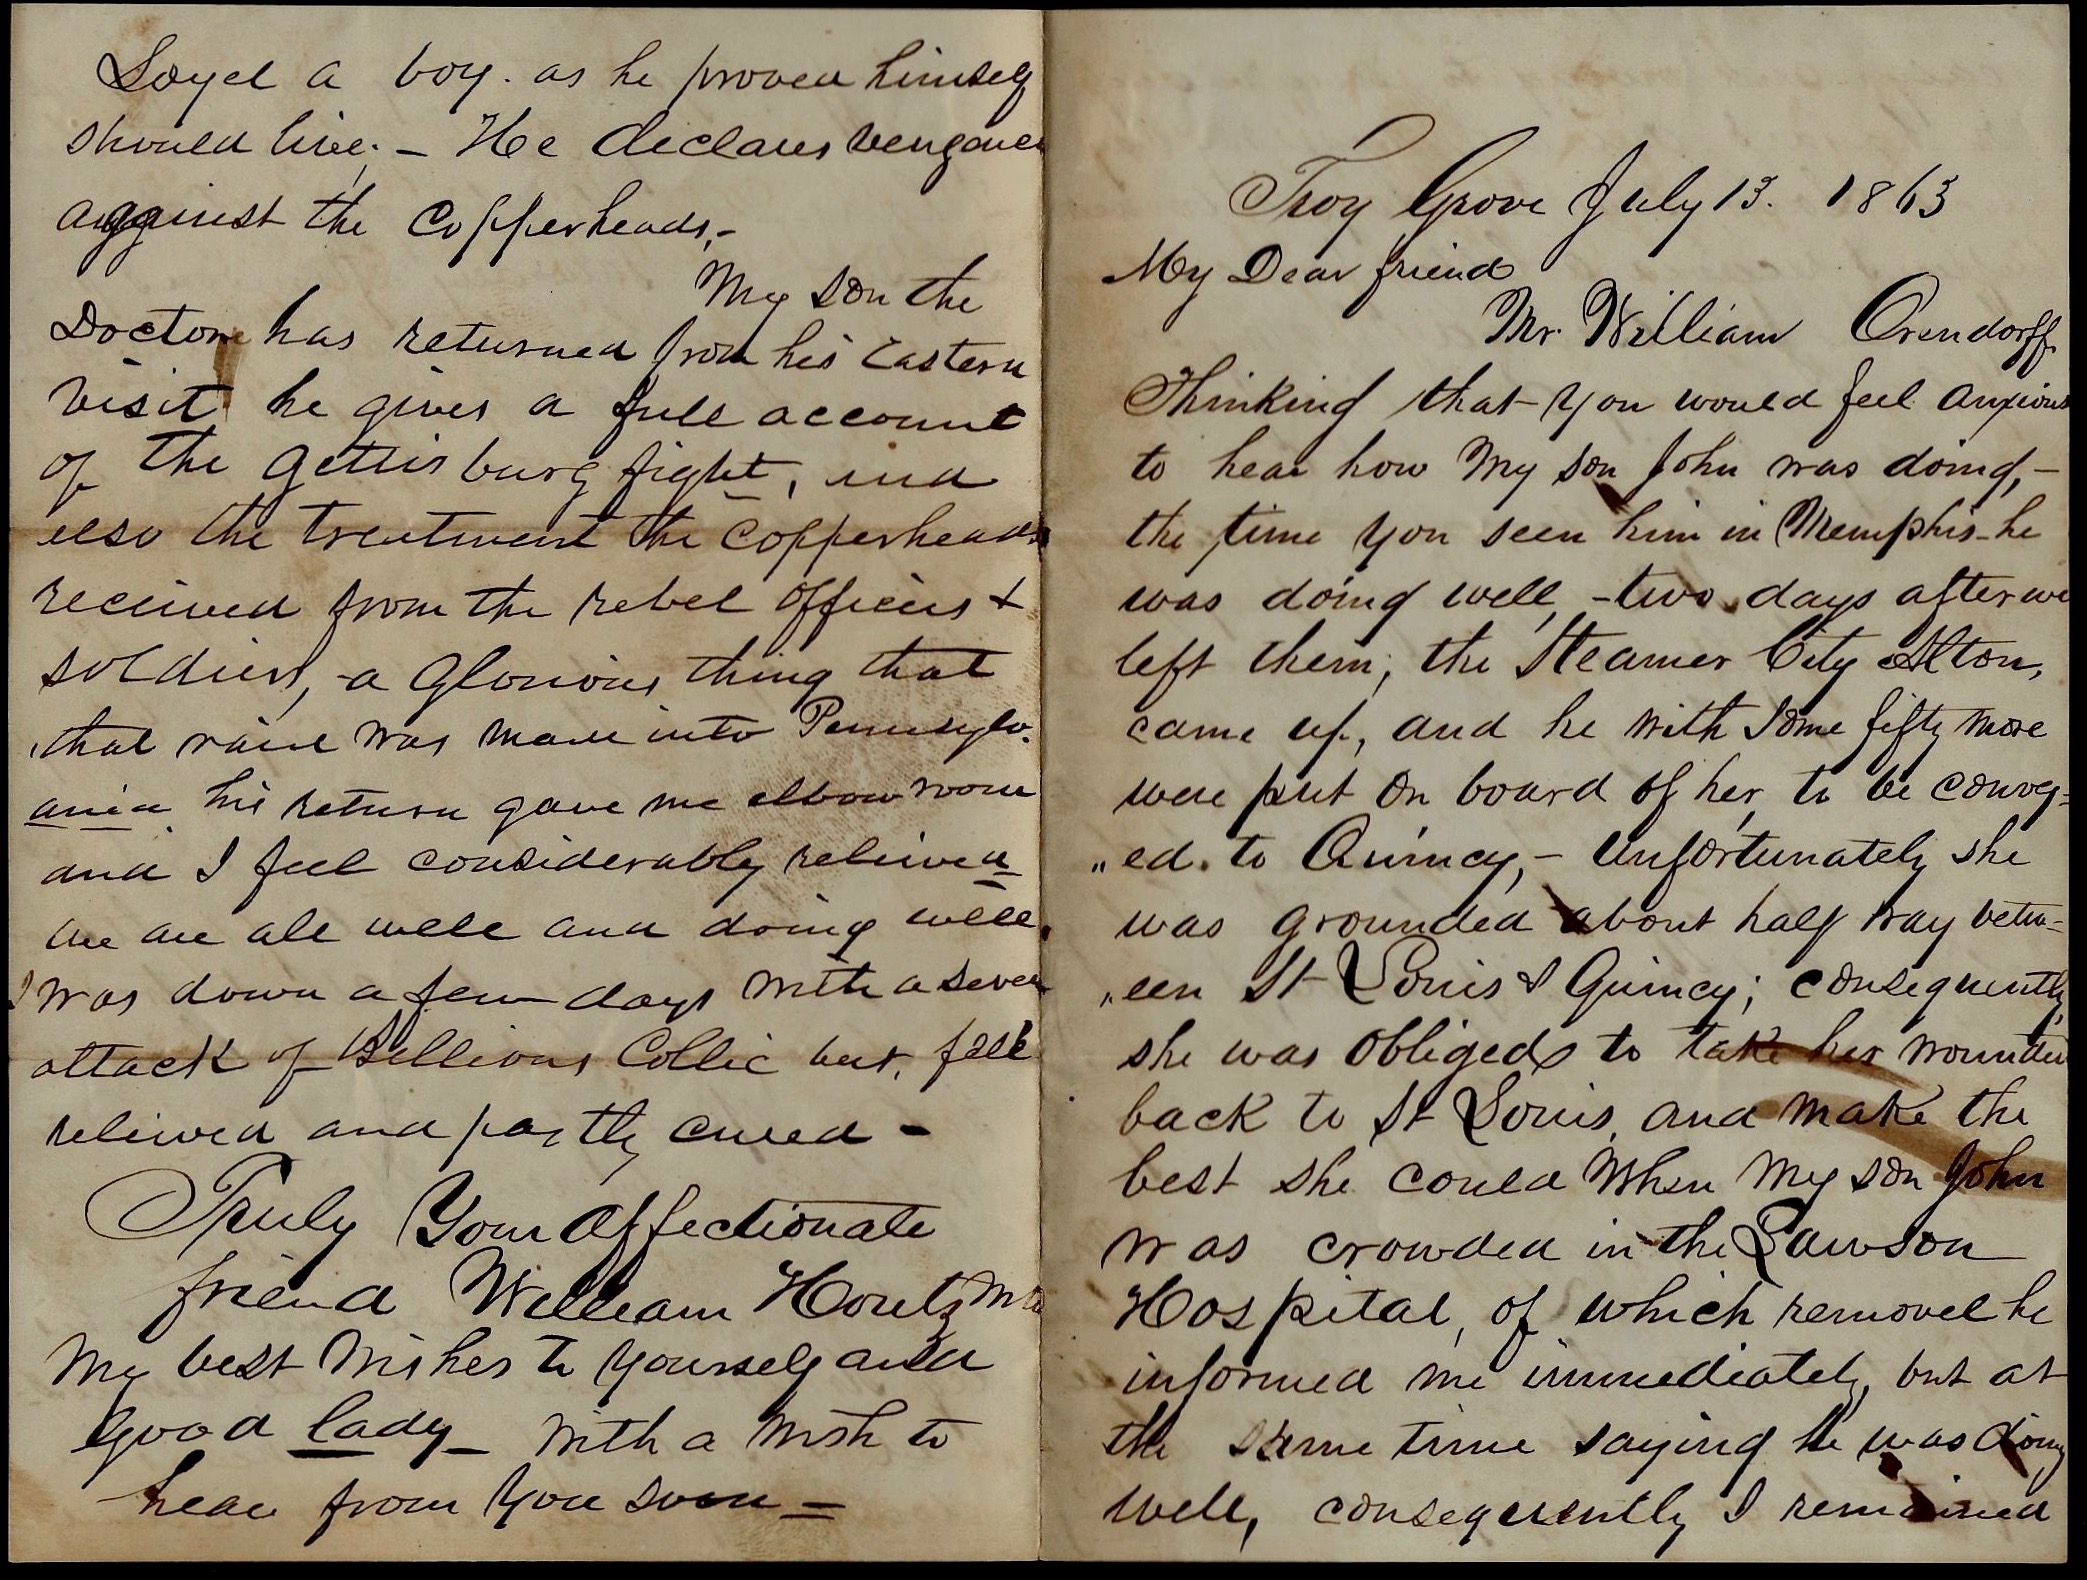 Loyel a boy. as he proved himself
should live; – He declares vengance
against the Copperheads,–
My son the
Doctor has returned from his Eastern
visit he gives a full account
of the Gettisburg fight, and
also the treatment the Copperheads
received from the rebel officers &
soldiers, – a Glorious thing that
that raid was made into Pennsylv-
ania his return gave me elbow room
and I feel considerably relieved
we are all well and doing well.
I was down a few days with a sever
attack of Billious Collic but, feel
relieved and partly cured –
Truly Your Affectionate
friend William Houtz MD
My best wishes to yourself and
good lady – with a wish to
hear from you soon –
Troy Grove July 13. 1863
My Dear friend
Mr. William Orendorff
Thinking that you would feel anxious
to hear how my son John was doing, –
the time you seen him in Memphis – he
was doing well, – two days after we
left them, the Steamer City Alton,
came up, and he with some fifty more
were put on board of her, to be convey=
„ed. to Quincy, – Unfortunately she
was grounded about half way betw=
„een St Louis & Quincy; consequently,
she was obliged to take her wounded
back to St Louis, and make the
best she could when my son John
was crowded in the Lawson
Hospital, of which removel he
informed me immediately, but at
the same time saying he was doing
well, consequently I remained